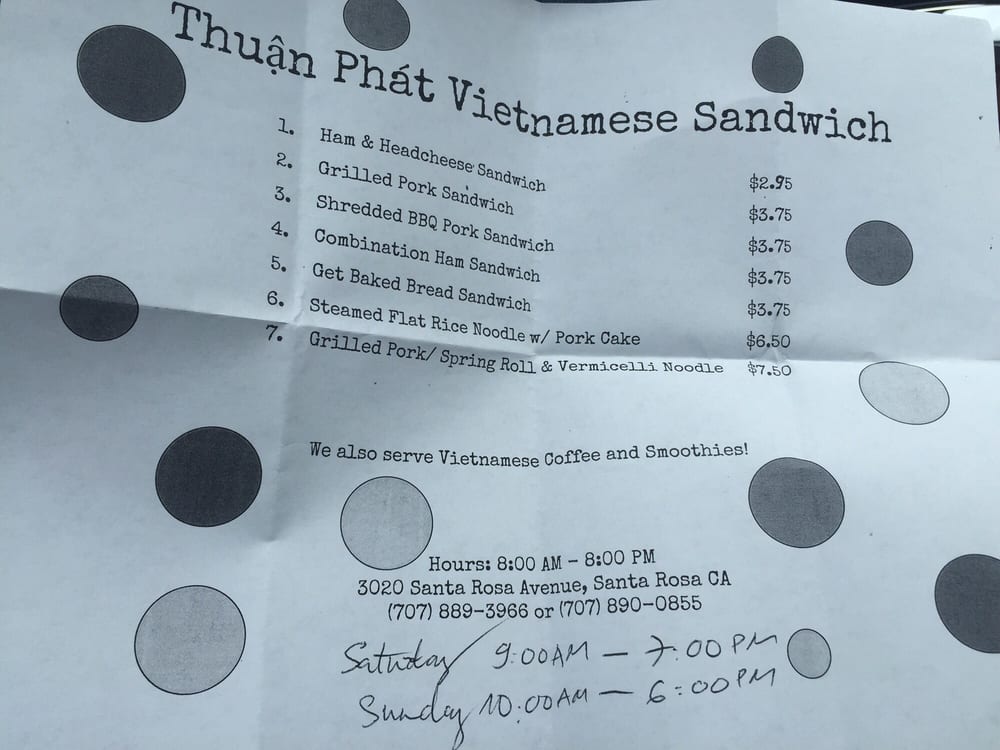 Thuận Phát Vietnamese Sandwich
1. Ham & Headcheese Sandwich $2.95
2. Grilled Pork Sandwich $3.75
3. Shredded BBQ Pork Sandwich $3.75
4. Combination Ham Sandwich $3.75
5. Get Baked Bread Sandwich $3.75
6. Steamed Flat Rice Noodle w/ Pork Cake $6.50
7. Grilled Pork/ Spring Roll & Vermicelli Noodle $7.50
We also serve Vietnamese Coffee and Smoothies!
Hours: 8:00 AM - 8:00 PM
3020 Santa Rosa Avenue, Santa Rosa CA
(707) 889-3966 or (707) 890-0855
Saturday 9:00AM — 7:00 PM
Sunday 10:00AM — 6:00PM